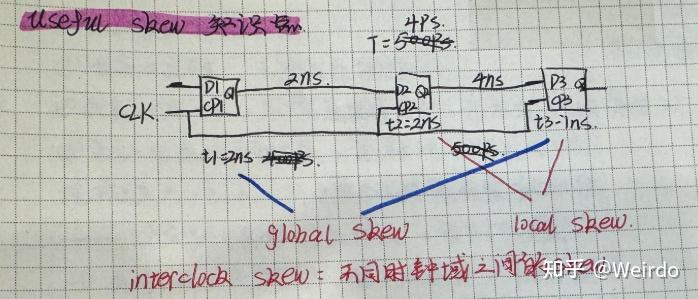 useful skew 知识点.
4ps.
T = 500ps.
2ns.
4ns
D1
Q
CP1
D2 Q2
CP2
D3 Q
CP3
CLK.
t1=2ns 400ps.
t2=2ns
t3=1ns.
500ps.
global skew
local skew.
interclock skew: 不同时钟域之间
知乎 @Weirdo